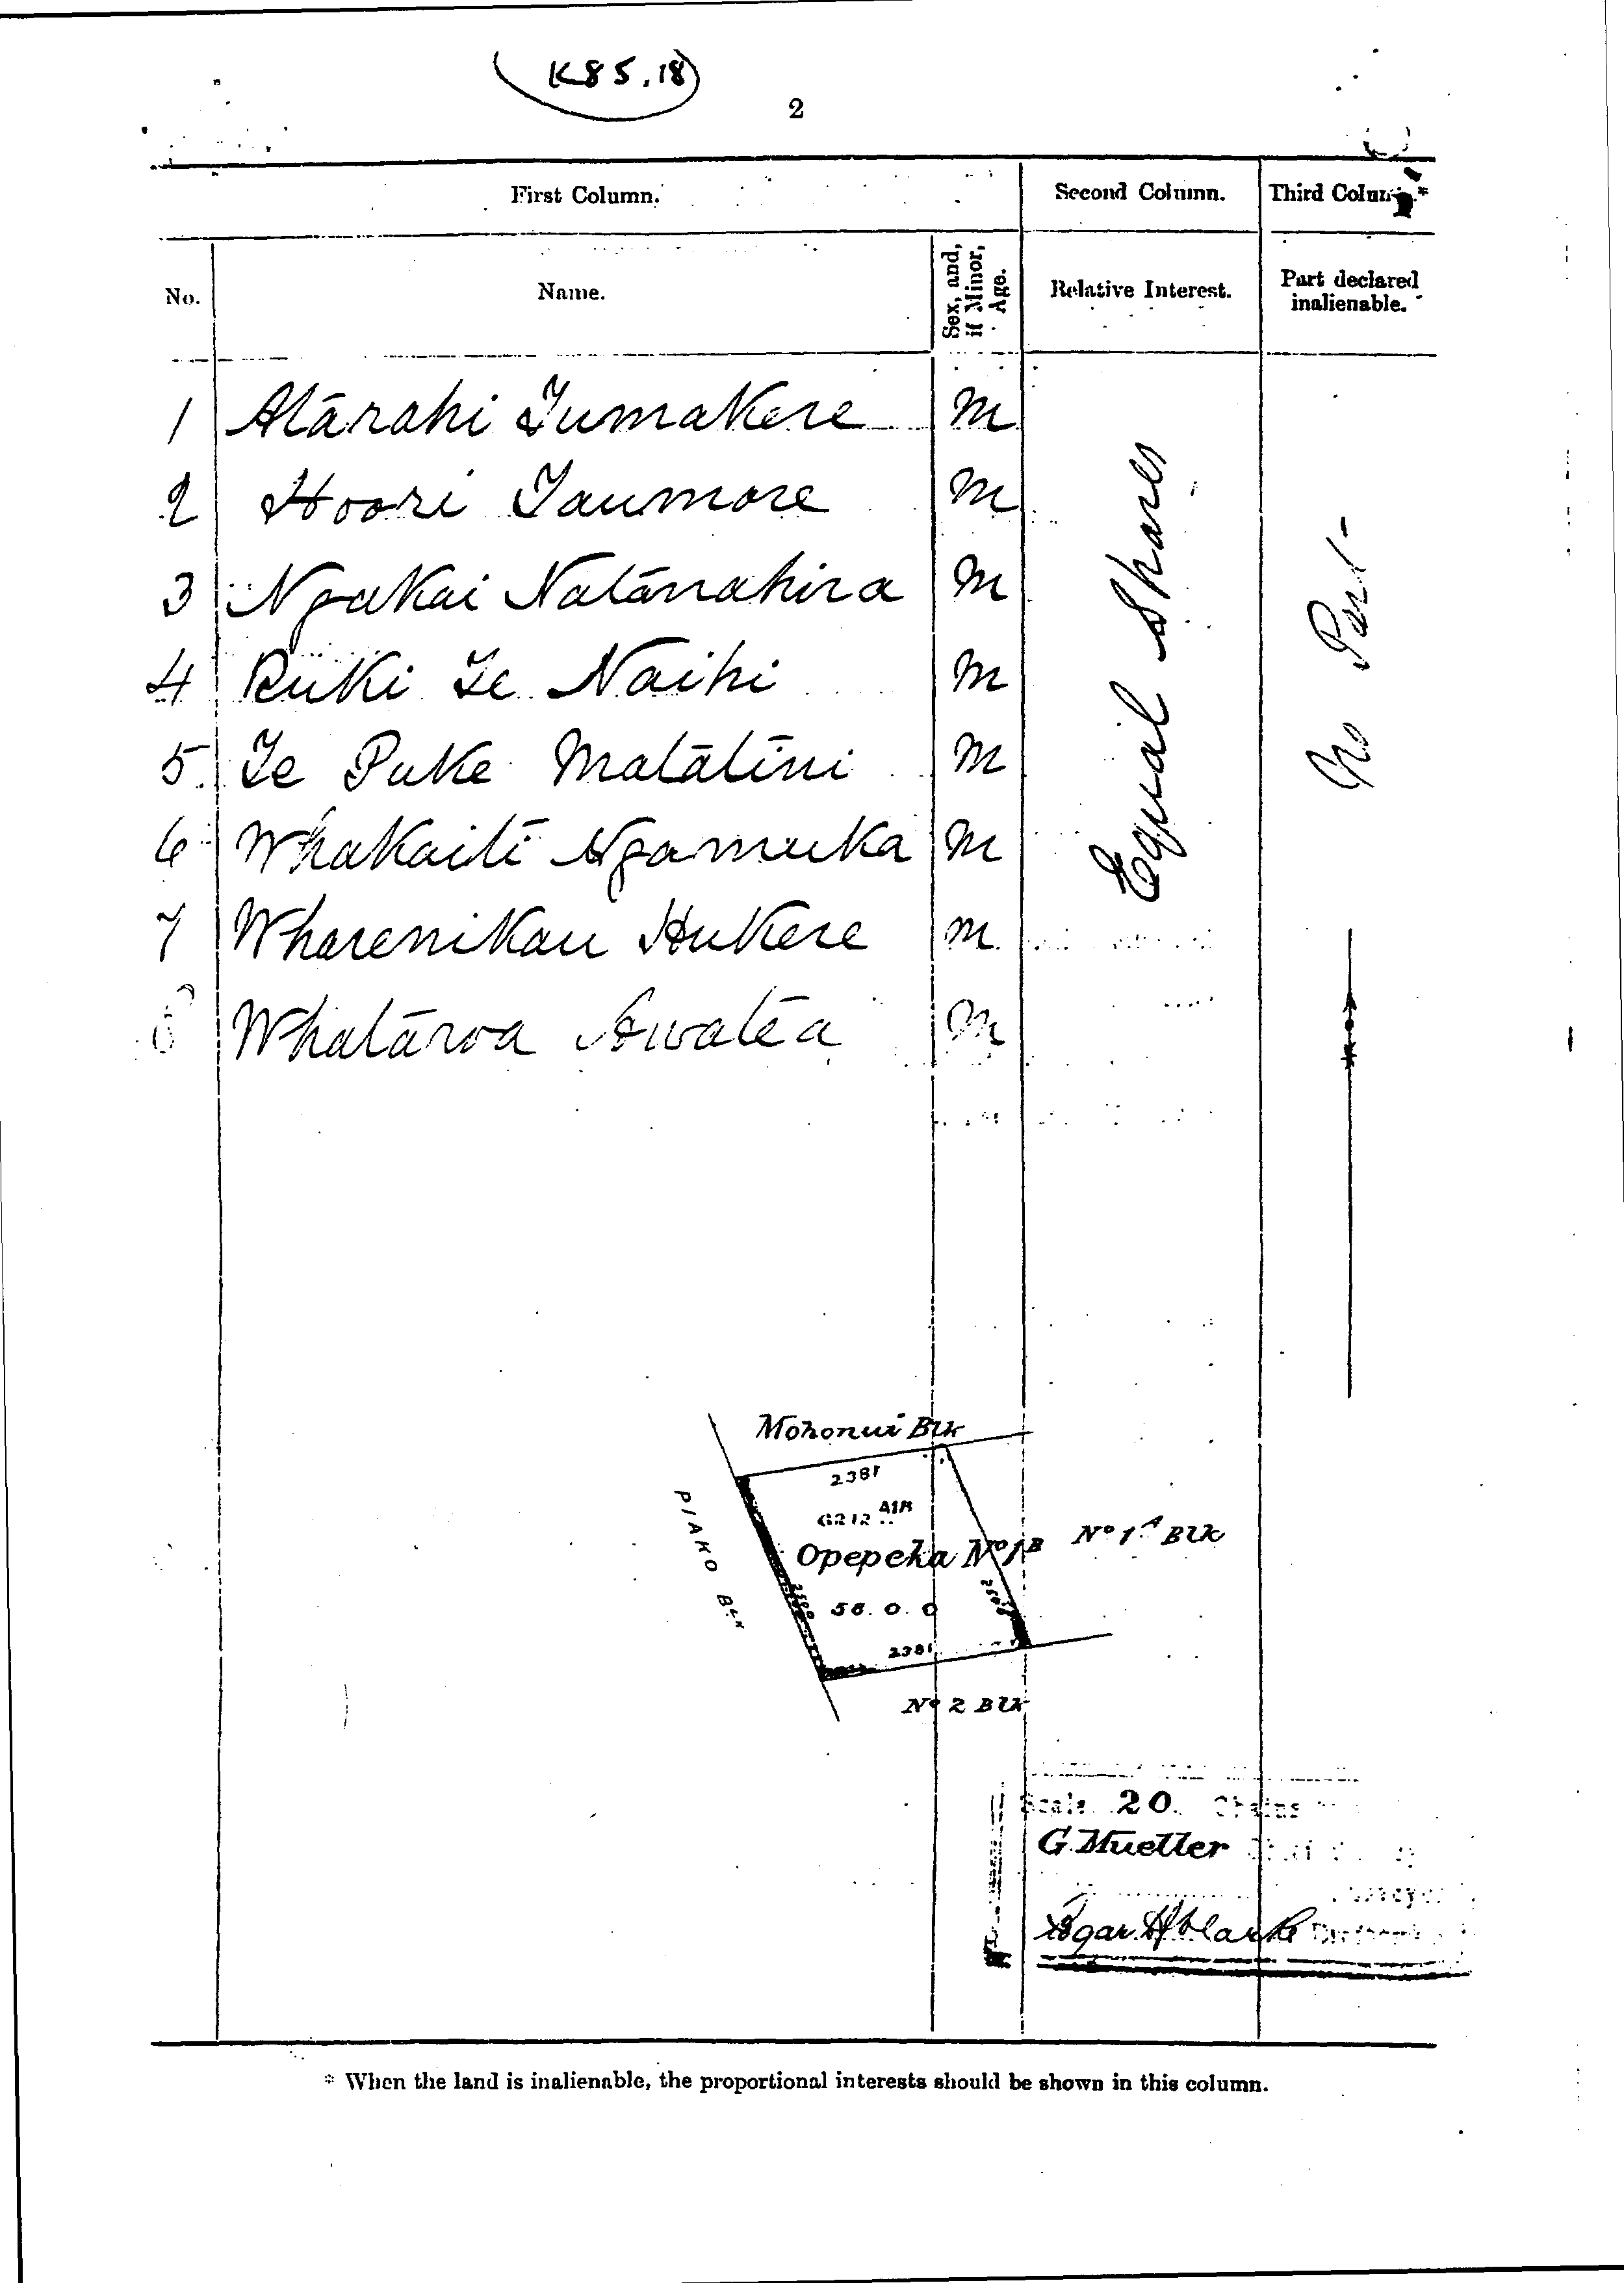 K85.18
2
First Column. Second Column. Third Column.*
No. Name. Sex, and, if Minor, Age. Relative Interest. Part declared inalienable.
1 Atarahi Tumakere M
2 Hoori Taumore M
3 Ngakai Natanahira M
4 Ruki Te Naihi M
5 Te Puke Matatini M
6 Whakaiti Ngamuka M
7 Wharenikau Hukere M
8 Whataroa Awatea M
Equal Shares
No Part
Mohonui Blk
2381
6212 A1B
PIAKO Blk
Opepeka No 1B No 1A Blk
2500 2500
56. 0. 0
2381
No 2 Blk
Scale 20 Chains
G. Mueller
Clarke
* When the land is inalienable, the proportional interests should be shown in this column.